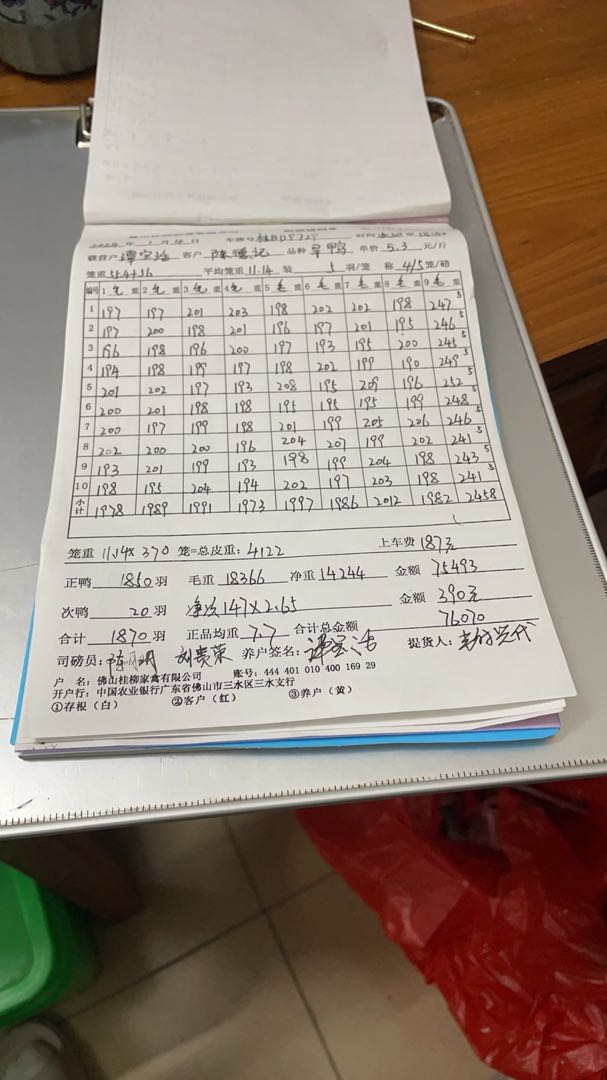 2024 年 1 月 4 日 车牌号 桂BDP727 时间
联营户 客户 陈德记 品种 旱鸭 单价 5.3 元/斤
笼重 55.4÷5 平均笼重 11.14 装 5 羽/笼 称 4/5 笼/磅
编号 1 毛 重 2 毛 重 3 毛 重 4 毛 重 5 毛 重 6 毛 重 7 毛 重 8 毛 重 9 毛 重
1 197 197 201 203 198 202 202 198 247 5
2 197 200 198 201 196 197 201 195 246 5
3 196 198 196 200 197 193 195 200 245 5
4 194 198 199 197 198 202 199 190 249 5
5 201 202 197 193 208 195 209 196 252 5
6 200 201 198 198 195 195 195 199 248 5
7 200 197 199 198 201 199 205 206 246 5
8 202 200 200 196 204 207 199 202 241 5
9 193 201 199 193 198 199 204 198 243 5
10 198 195 204 194 202 197 203 198 241 5
小计 1978 1989 1991 1973 1997 1986 2012 1982 2458
笼重 11.14× 370 笼=总皮重: 4122 上车费 187元
正鸭 1850 羽 毛重 18366 净重 14244 金额 75493
次鸭 20 羽 净次 147×2.65 金额 390元
合计 1870 羽 正品均重 7.7 合计总金额 76070
司磅员: 刘贵荣 养户签名: 提货人:
户 名: 佛山桂柳家禽有限公司 账号: 444 401 010 400 169 29
开户行: 中国农业银行广东省佛山市三水区三水支行
①存根 (白) ②客户 (红) ③养户 (黄)